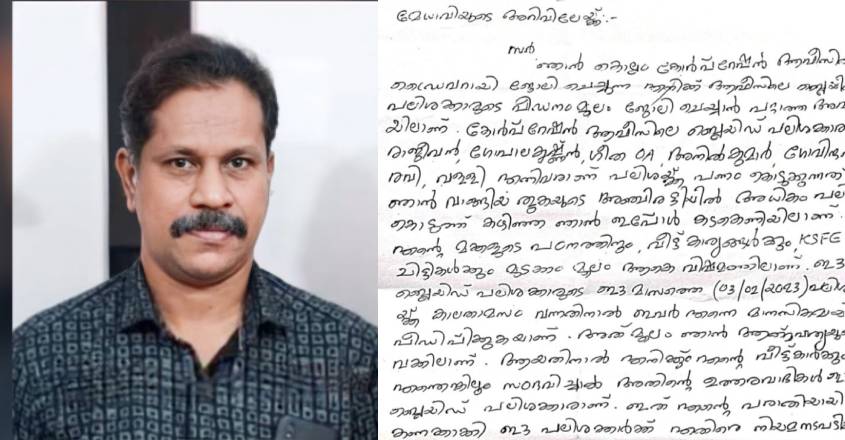 മേധാവിയുടെ അറിവിലേയ്ക്ക് :-
സർ
ഞാൻ കൊല്ലം കോർപ്പറേഷൻ ആഫീസിൽ
ഡ്രൈവറായി ജോലി ചെയ്യുന്ന എനിക്ക് ആഫീസിലെ ബ്ലെയിഡ്
പലിശക്കാരുടെ പീഡനം മൂലം ജോലി ചെയ്യാൻ പറ്റാത്ത അവ
യിലാണ്. കോർപ്പറേഷൻ ആഫീസിലെ ബ്ലെയിഡ് പലിശക്കാരാ
രാജീവൻ, ഗോപാലകൃഷ്ണൻ, ഗീത OA, അനിൽകുമാർ, ഗോവിന്ദ
രവി, വള്ളി എന്നിവരാണ് പലിശയ്ക്ക് പണം കൊടുക്കുന്നത്
ഞാൻ വാങ്ങിയ തുകയുടെ അഞ്ചിരട്ടിയിൽ അധികം പലി
കൊടുത്ത് കഴിഞ്ഞ ഞാൻ ഇപ്പോൾ കടക്കെണിയിലാണ്.
എന്റെ മക്കളുടെ പഠനത്തിനും, വീട്ട് കാര്യങ്ങൾക്കും, KSFE
ചിട്ടികൾക്കും മുടക്കം മൂലം ആകെ വിഷമത്തിലാണ്. ഈ
ബ്ലെയിഡ് പലിശക്കാരുടെ ഈ മാസത്തെ (03/02/2023) പലിശ
യ്ക്ക് കാലതാമസം വന്നതിനാൽ ഇവർ എന്നെ മാനസികമായി
പീഡിപ്പിക്കുകയാണ്. അത് മൂലം ഞാൻ ആത്മഹത്യയുടെ
വക്കിലാണ്. ആയതിനാൽ എനിക്കും എന്റെ വീട്ട്കാർക്കും
എന്തെങ്കിലും സംഭവിച്ചാൽ അതിന്റെ ഉത്തരവാദികൾ ഈ
ബ്ലെയിഡ് പലിശക്കാരാണ്. ഇത് എന്റെ പരാതിയായി
കണക്കാക്കി ഈ പലിശക്കാർക്ക് എതിരെ നിയമനടപടി